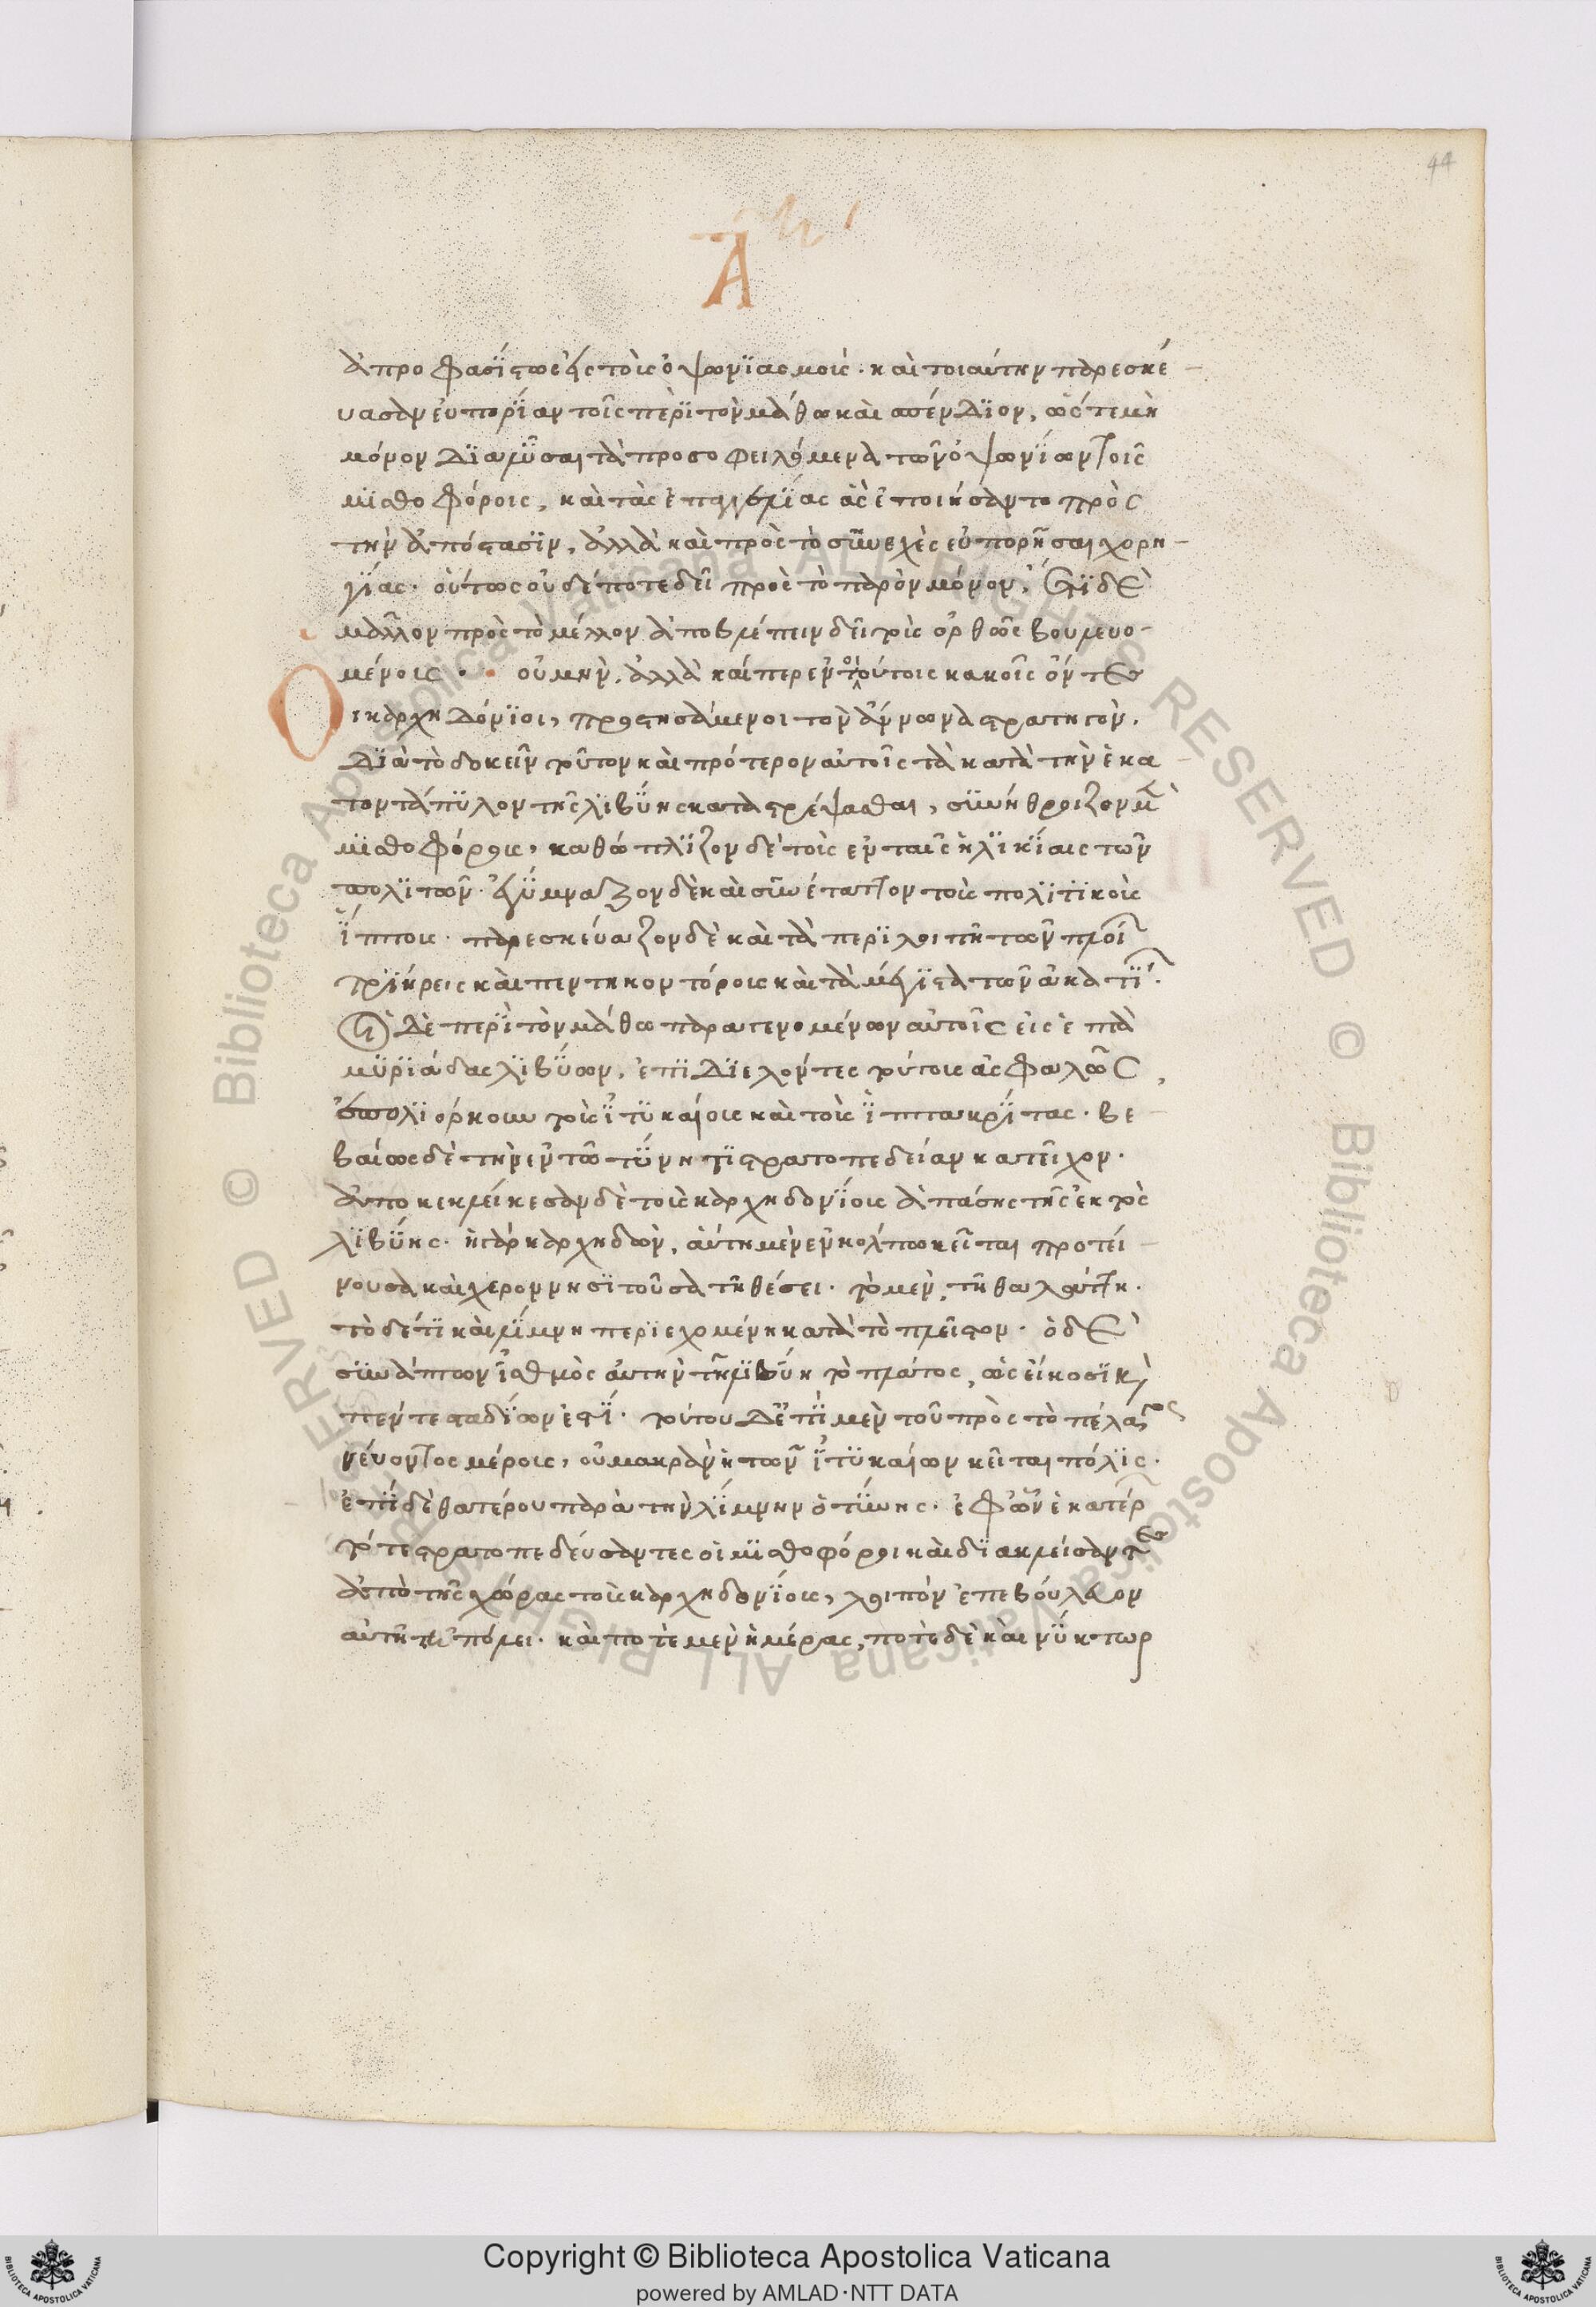 44
Α
ἀπροφασίστως ἐς τοὺς ὀψωνιασμούς. καὶ τοιαύτην παρεσκέ
υασαν εὐπορίαν τοῖς περὶ τὸν μάθω καὶ σπένδιον, ὥστε μὴ
μόνον διαλῦσαι τὰ προσοφειλόμενα τῶν ὀψωνίων τοῖς
μισθοφόροις, καὶ τὰς ἐπαγγελίας ἃς ἐποιήσαντο πρὸς
τὴν ἀπόστασιν, ἀλλὰ καὶ πρὸς τὸ συνεχὲς εὐπορῆσαι χορη
γίας. οὕτως οὐδέποτε δεῖ πρὸς τὸ παρὸν μόνον, ἔτι δὲ
μᾶλλον πρὸς τὸ μέλλον ἀποβλέπειν δεῖ τοὺς ὀρθῶς βουλευο
μένους. οὐ μὴν ἀλλὰ καίπερ ἐν τοιούτοις κακοῖς ὄντες
Οἱ καρχηδόνιοι, προστησάμενοι τὸν ἄννωνα στρατηγὸν,
διὰ τὸ δοκεῖν τοῦτον καὶ πρότερον αὐτοῖς τὰ κατὰ τὴν ἑκα
τοντάπυλον τῆς λιβύης καταστρέψασθαι, συνήθροιζον μὲν
μισθοφόρους, καθώπλιζον δὲ τοὺς ἐν ταῖς ἡλικίαις τῶν
πολιτῶν. ἐγύμναζον δὲ καὶ συνέταττον τοὺς πολιτικοὺς
ἵππους. παρεσκεύαζον δὲ καὶ τὰ περιλοιπῆ τῶν πλοί
τριήρεις καὶ πεντηκοντόρους καὶ τὰ μέγιστα τῶν ἀκατί.
οἱ δὲ περὶ τὸν μάθω παραγενομένων αὐτοῖς εἰς ἑπτὰ
μυριάδας λιβύων, ἐπιδιελόντες τούτους ἀσφαλῶς,
ἐπολιόρκουν τοὺς ἰτυκαίους καὶ τοὺς ἱππακρίτας. βε
βαίως δὲ τὴν ἐν τῶ τύνητι στρατοπεδείαν κατεῖχον.
ἀποκεκλείκεσαν δὲ τοὺς καρχηδονίους ἁπάσης τῆς ἐκτὸς
λιβύης. ἡ γὰρ καρχηδὼν, αὕτη μὲν ἐν κόλπω κεῖται προτεί
νουσα καὶ χερονησίτουσα τῆ θέσει. τὸ μὲν, τῆ θαλάττη.
τὸ δέ τι καὶ λίμνη περιεχομένη κατὰ τὸ πλεῖστον. ὁ δὲ
συνάπτων ἰσθμὸς αὐτὴν τῆ λιβύη τὸ πλάτος, ὡς εἴκοσι κὶ
πέντε σταδίων ἐστί. τούτου δ' ἐπὶ μὲν τοῦ πρὸς τὸ πέλαγος
νεύοντος μέρους, οὐ μακρὰν ἡ τῶν ἰτυκαίων κεῖται πόλις.
ἐπὶ δὲ θατέρου παρὰ τὴν λίμνην ὁ τύνης. ἐφ' ὧν ἑκατέρ
τότε στρατοπεδεύσαντες οἱ μισθοφόροι καὶ διακλείσαντες
ἀπὸ τῆς χώρας τοὺς καρχηδονίους, λοιπὸν ἐπεβούλευον
αὐτῆ τῆ πόλει. καὶ ποτὲ μὲν ἡμέρας, ποτὲ δὲ καὶ νύκτωρ
Copyright © Biblioteca Apostolica Vaticana
powered by AMLAD·NTT DATA